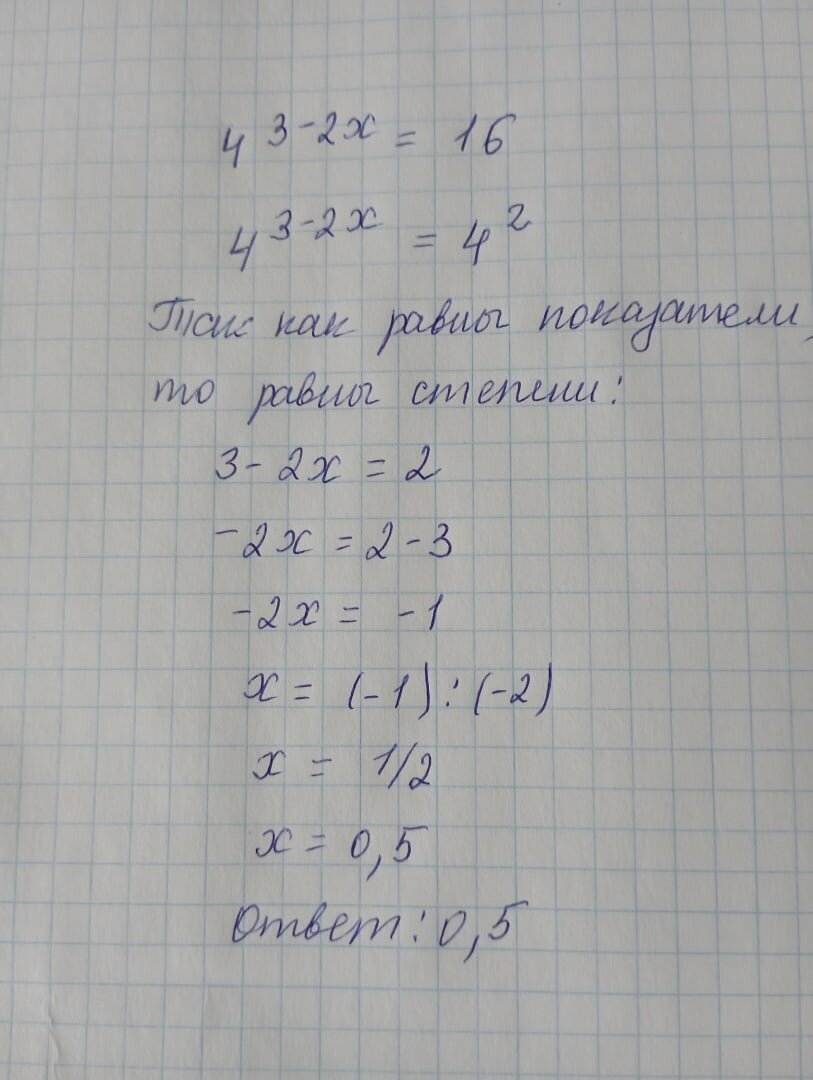 4^{3-2x} = 16
4^{3-2x} = 4^2
Так как равны показатели,
то равны степени:
3 - 2x = 2
-2x = 2 - 3
-2x = -1
x = (-1) : (-2)
x = 1/2
x = 0,5
Ответ: 0,5